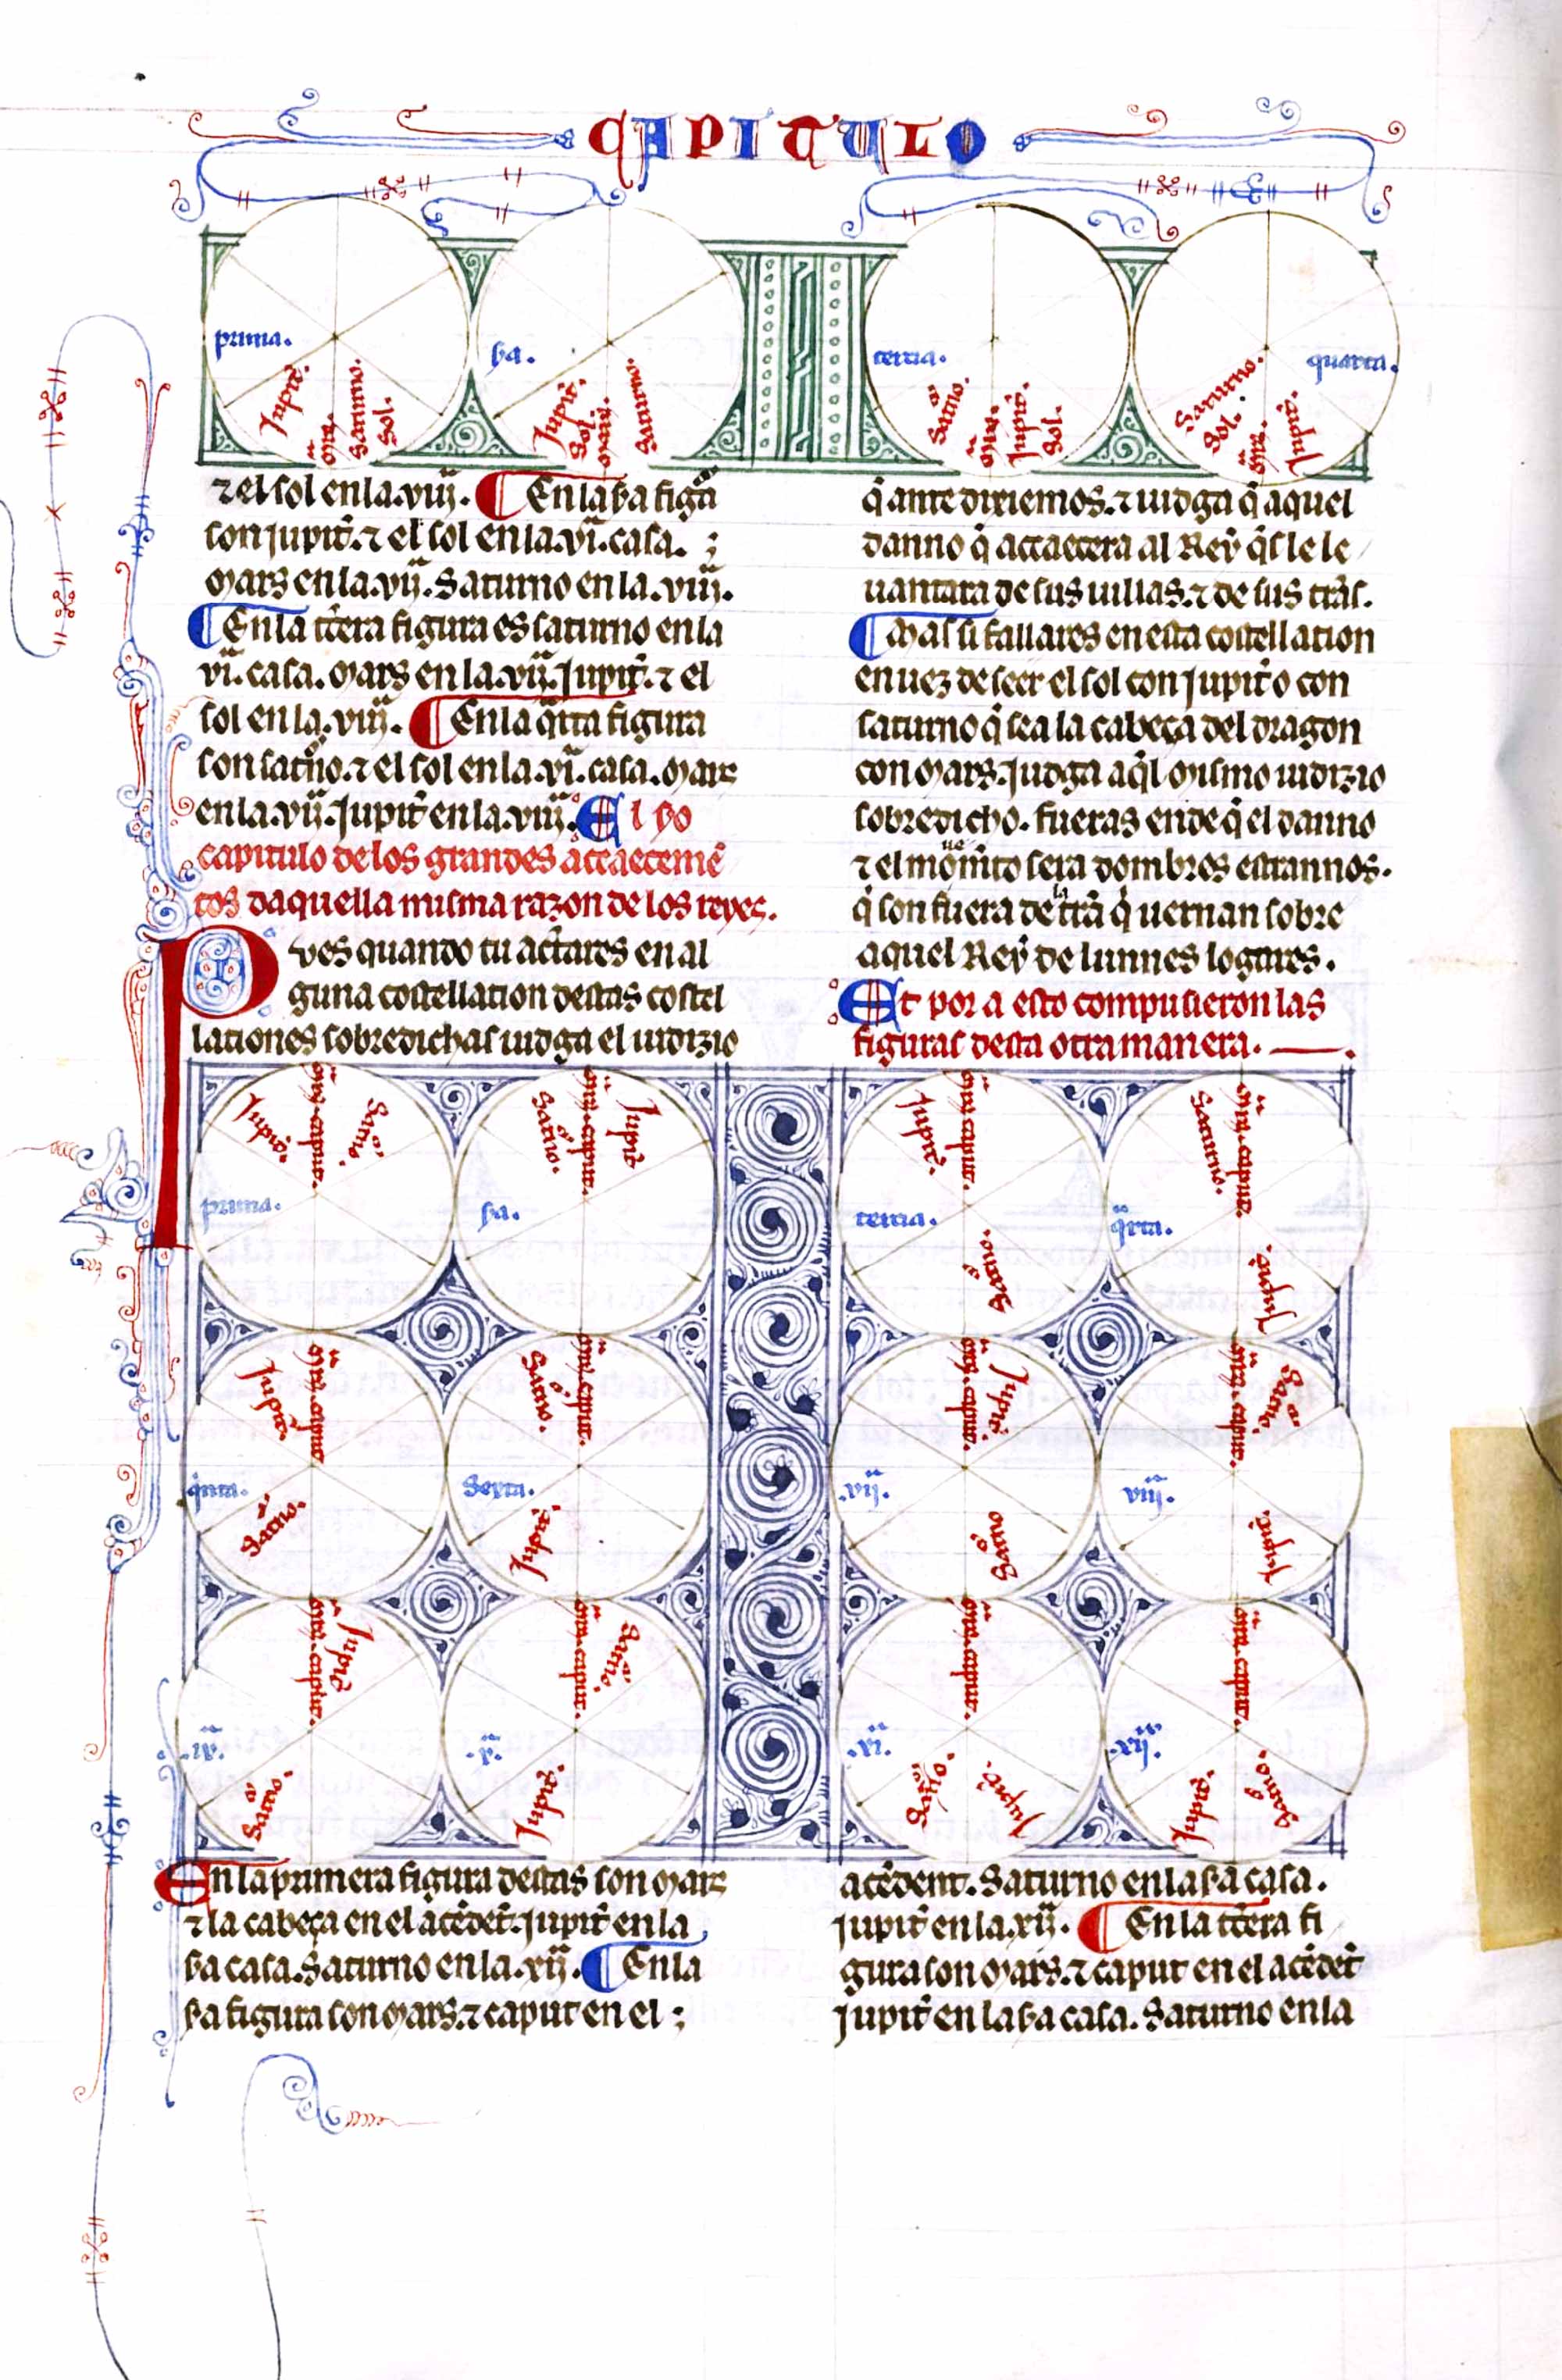 CAPITULO
prima.
Jupit̄.
mr̄s.
saturno
sol.
ßa.
Jupit̄.
sol.
mars.
saturno
tercia.
Satno.
mr̄s.
Jupit̄.
Sol.
quarta.
Saturno.
Sol.
mr̄s.
Jupit̄.
⁊ el sol en la .viij. ¶ En la ßa figã
son jupit̄. ⁊ el sol en la .vi. casa. ;
mars en la .vij. Saturno en la .viij.
¶ En la tc̄era figura es saturno en la
vi. casa. mars en la .vij. Jupit̄. ⁊ el
sol en la .viij. ¶ En la q̄rta figura
son sat̄no. ⁊ el sol en la .vi. casa. mars
en la .vij. Jupit̄ en la .viij. El
capitulo de los grandes accaecemē
tos daquella misma razon de los reyes.
Pues quando tu actares en al
guna costellation destas costel
lationes sobredichas iudga el iudizio
q̄ ante dixiemos. ⁊ iudga q̄ aquel
danno q̄ accaecera al Rey q̄ se le le
uantara de sus uillas. ⁊ de sus tr̄as.
¶ Mas si fallares en esta costellation
en uez de seer el sol con jupit̄ o con
saturno q̄ sea la cabeça del dragon
con mars. Judga aq̄l mismo iudizio
sobredicho. fueras ende q̄ el danno
⁊ el mouim̄to sera dombres estrannos.
q̄ son fuera de la tr̄a q̄ uernan sobre
aquel Rey de lunnes logares.
Et por a esto compusieron las
figuras desta otra manera.
prima.
Jupit̄.
mr̄s. caput.
Satno.
ßa.
Satno.
mr̄s. caput.
Jupit̄
tercia.
Jupit̄.
mr̄s. caput.
Satno.
q̄rta.
Saturno.
mr̄s. caput.
Jupit̄.
q̇nta.
Jupit̄.
mr̄s. caput
Satno.
Sexta.
Satno.
mr̄s. caput.
Jupit̄.
.vij.
mr̄s. caput.
Jupit̄
Satno
viij.
mr̄s. caput.
Satno
Jupit̄.
.ix.
mr̄s. caput.
Jupit̄
Satno.
.x.
mr̄s. caput.
Satno.
Jupit̄.
.xi.
mr̄s. caput.
Satno.
Jupit̄.
.xij.
mr̄s. caput.
Jupit̄.
Satno.
En la primera figura destas son mars
⁊ la cabeça en el acēdēt. jupit̄ en la
ßa casa. Saturno en la .xij. ¶ En la
ßa figura son mars. ⁊ caput en el ;
acēdent. Saturno en la ßa casa.
jupit̄ en la .xij. ¶ En la tc̄era fi
gura son mars. ⁊ caput en el acēdēt
jupit̄ en la ßa casa. Saturno en la